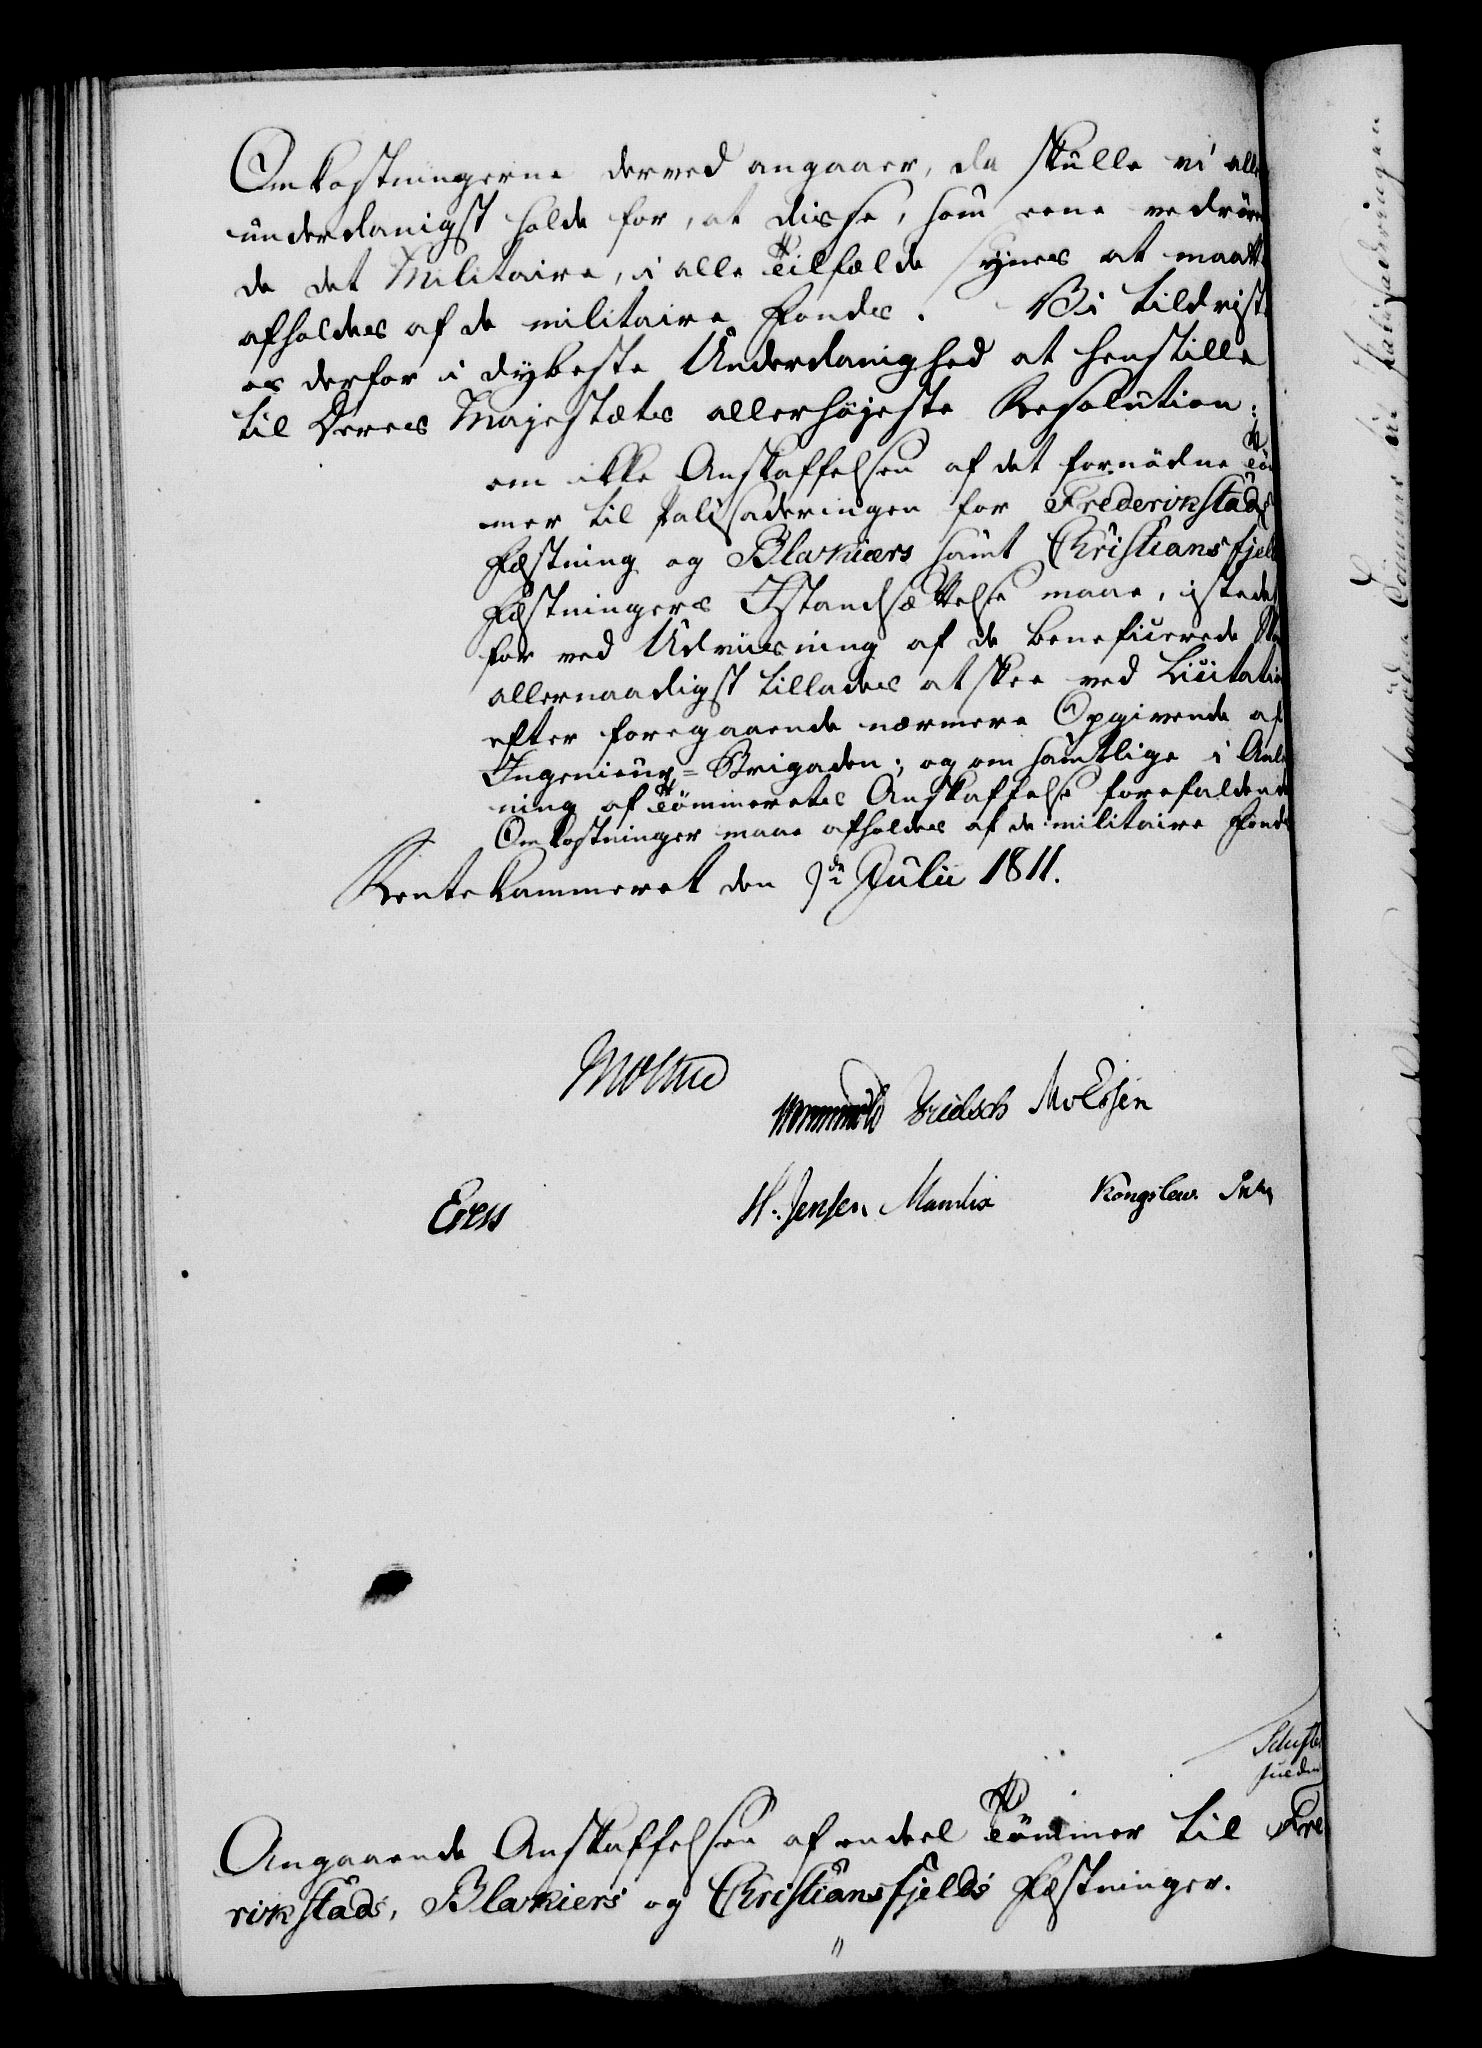 Omkostningerne derved angaaer, da skulle vi alle
underdanigst holde for, at disse, som eene vedrøren
de det Militaire, i alle Tilfælde synes at maatte
afholdes af de militaire Fondes. Vi tildriste
os derfor i dybeste Underdanighed at henstille
til Deres Majestæts allerhøjeste Resolution:
om ikke Anskaffelsen af det fornødne Tøm
mer til Palisaderingen for Frederikstads
Fæstning og Blakiærs samt Christiansfjelds
Fæstningers Istandsættelse maae, istedet
for ved Udviisning af de beneficerede
allernaadigst tillades at skee ved Licitation
efter foregaaende nærmere Opgivende af
Ingenieur-Brigaden; og om samtlige i Anled
ning af Tømmerets Anskaffelse forefaldende
Omkostninger maae afholdes af de militaire Fondes
Rentekammeret den 9de Julii 1811.
Moltke
Wormskiold Bruch M Essen
Evers H. Jensen Mandix Kongslew
Angaaende Anskaffelsen af endeel Tømmer til Fre
rikstads, Blakiers og Christiansfjelds Fæstninger.